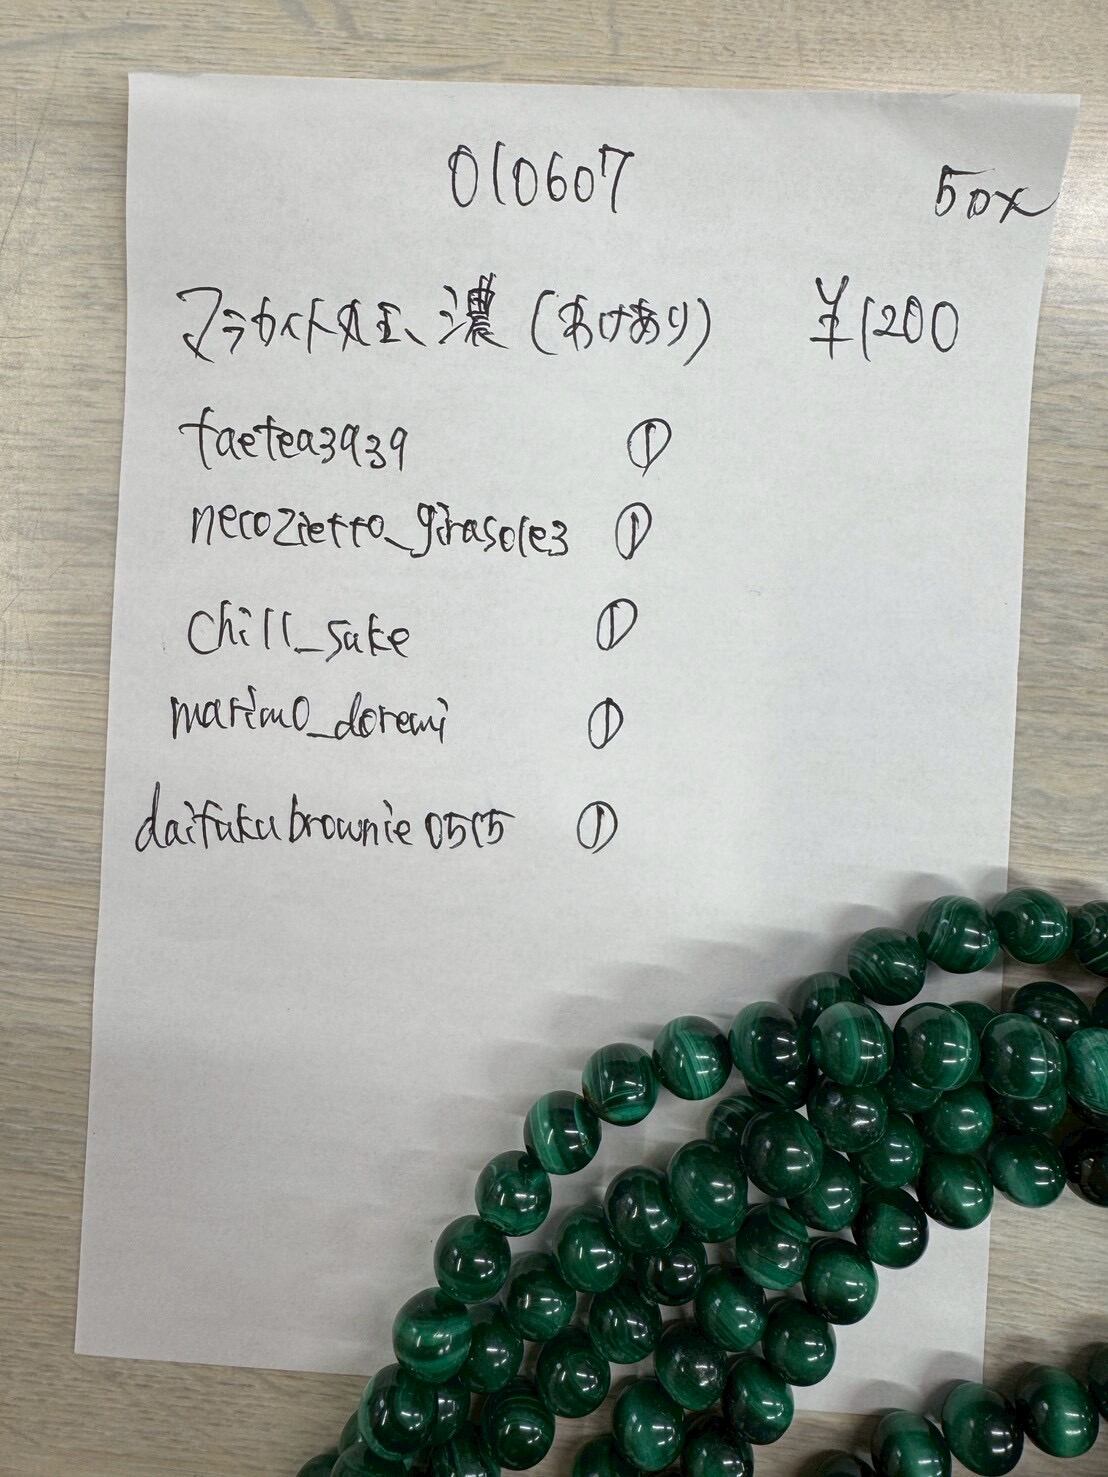 010607
50x
マラカイト丸玉、濃(わけあり) ¥1200
taetea3939 ①
necozietto_girasole3 ①
chill_sake ①
marimo_doremi ①
daifukubrownie0515 ①